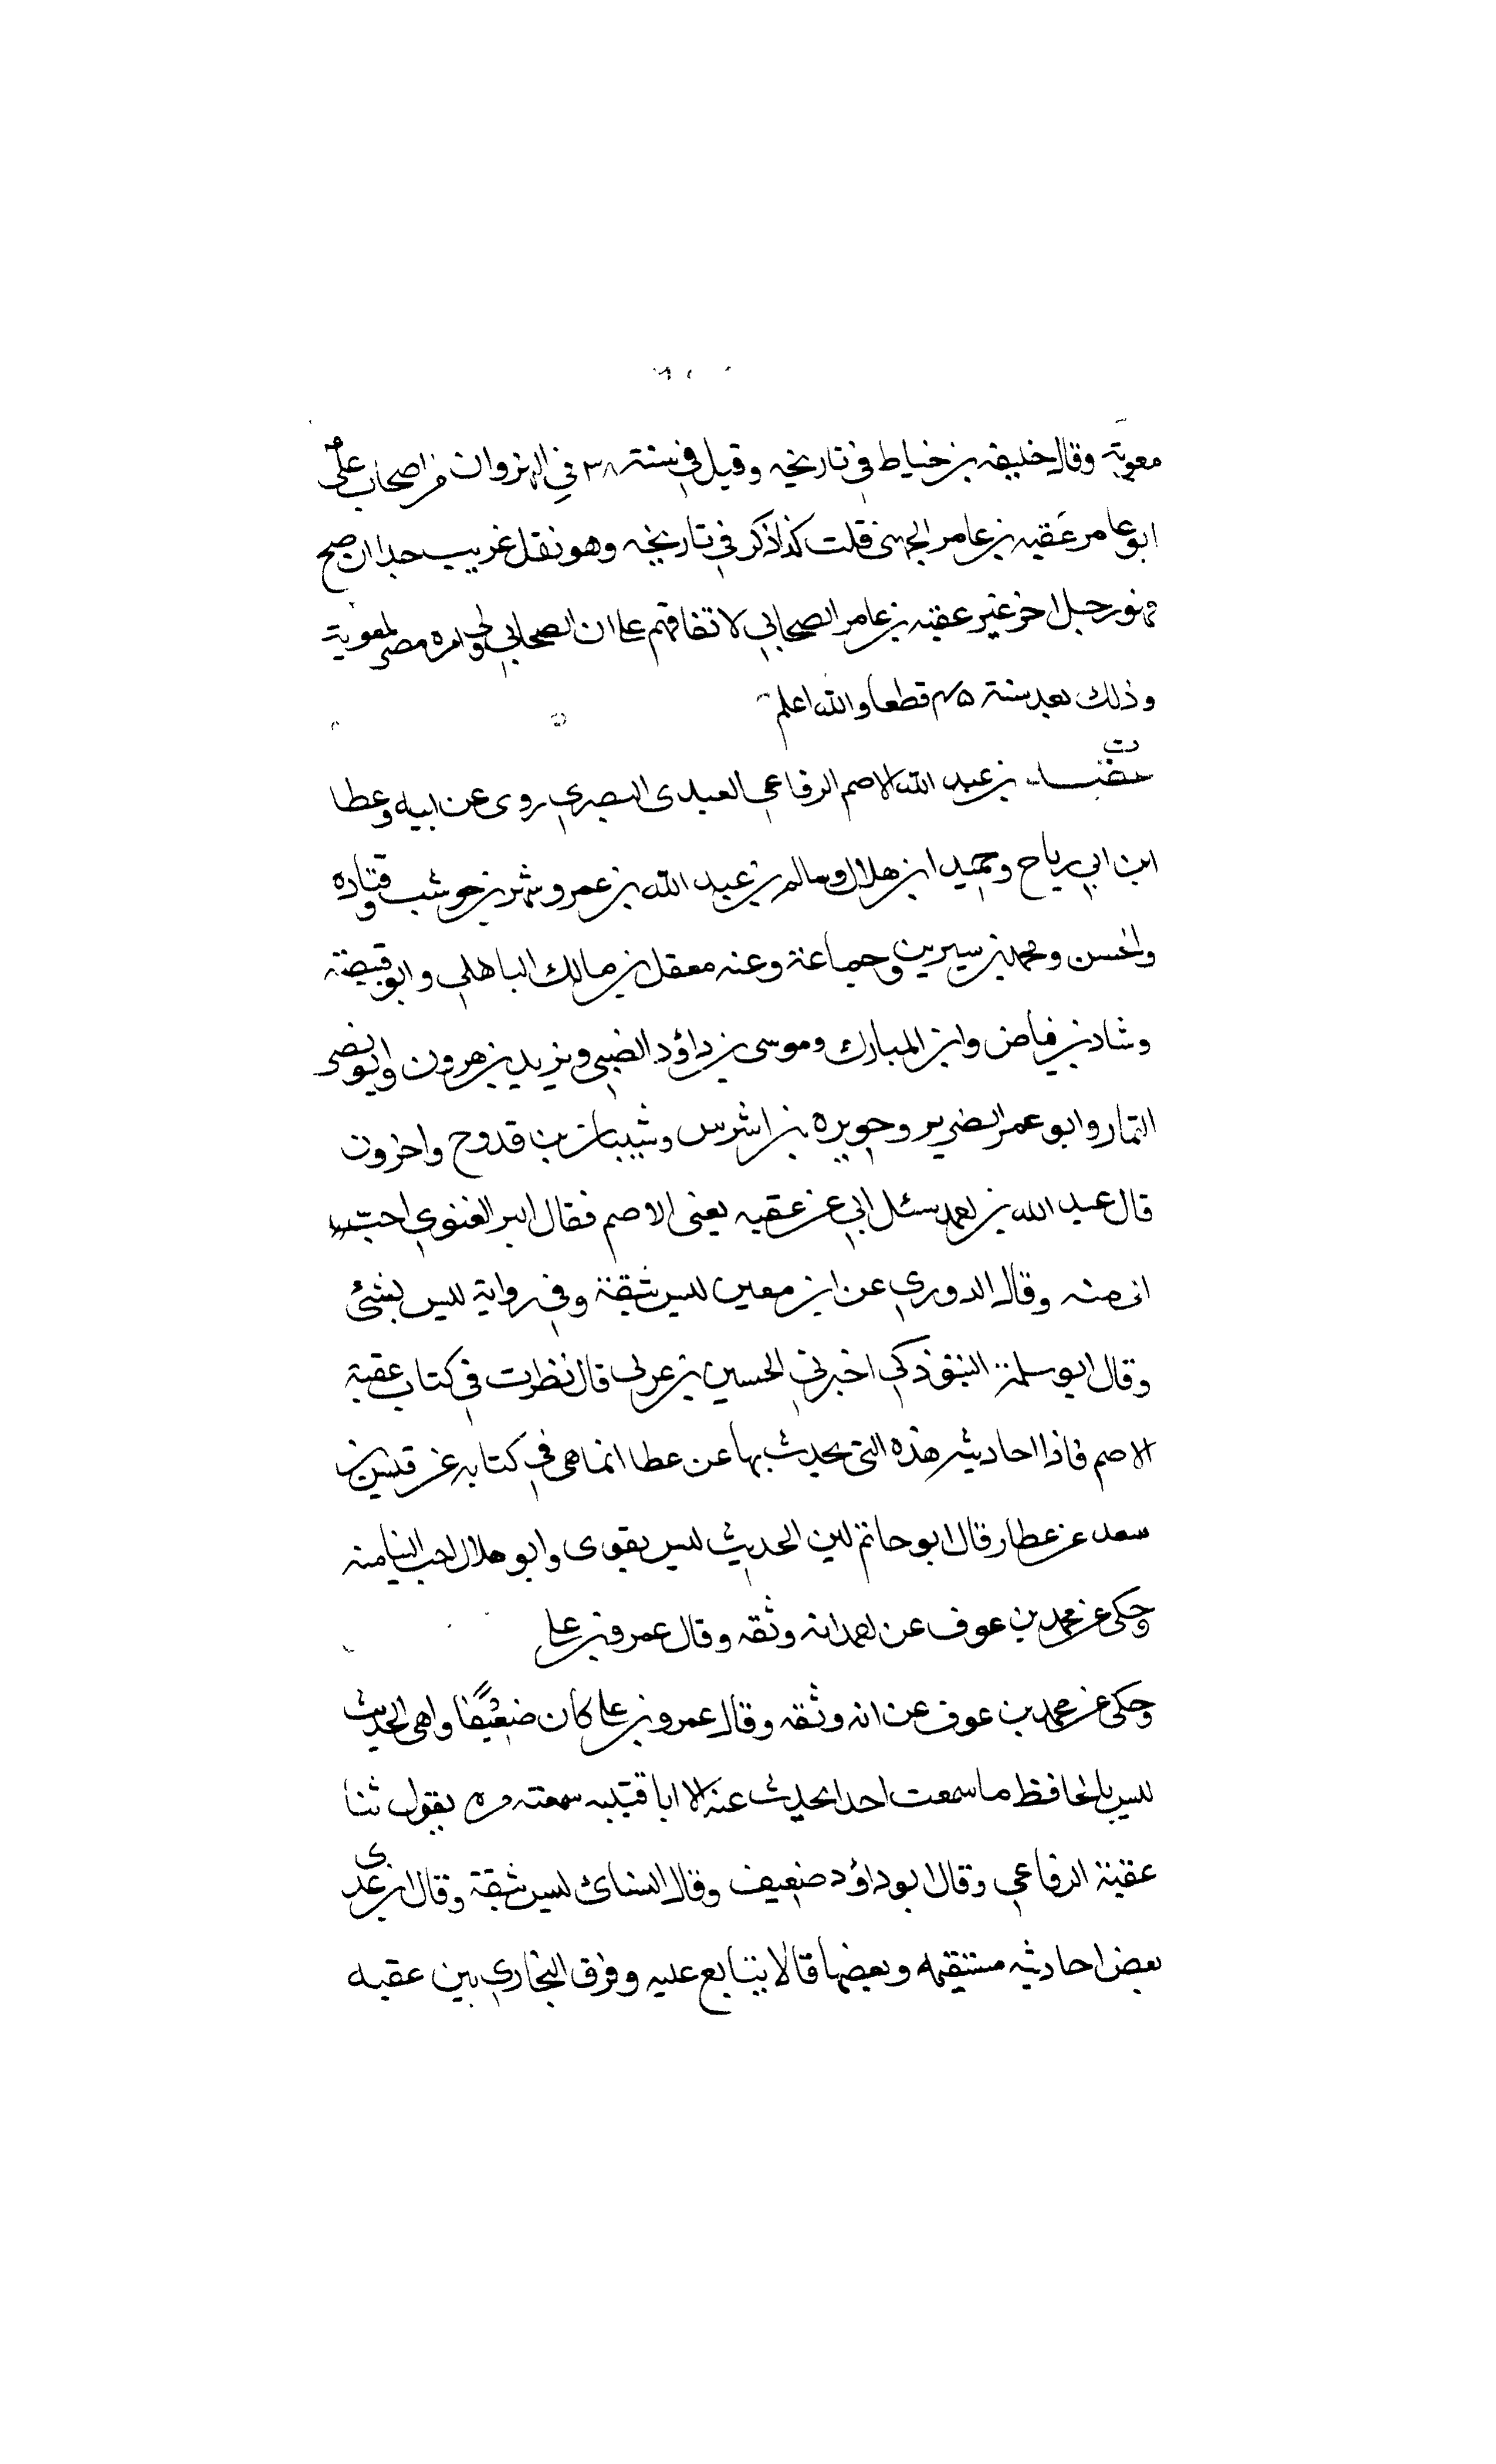 معوية وقال خليفه بن خياط في تاريخه وقيل في سنة ٣٨ في النهروان من اصحاب علي
ابو عامر عقبه بن عامر الجهني قلت كذا ذكر في تاريخه وهو نقل غريب جدا ان صح
فهو رجل اخر غير عقبه بن عامر الصحابي لاتفاقهم على ان الصحابي ولي امره مصر لمعوية
وذلك بعد سنة ٤٥ قطعا والله اعلم
ت
عقبه بن عبد الله الاصم الرفاعي العبدى البصري روى عن ابيه وعطا
ابن ابي رياح وحميد ابن هلال وسالم بن عبد الله بن عمر وشهر بن حوشب وقتاده
والحسن ومحمد بن سيرين وجماعة وعنه معقل بن مالك الباهلي وابو قبيضة
وشاد بن فياض وابن المبارك وموسى بن داؤد الضبي ويزيد بن هرون وابو نصر
التمار وابو عمر الضرير وجويره بن اشرس وشيبان بن قدوح واخرون
قال عبد الله بن احمد سئل ابي عن عقبه يعنى الاصم فقال البر الغنوي احب
الى منه وقال الدوري عن ابن معين ليس بثقة وفي رواية ليس بشئ
وقال ابو سلمة التبوذكي اخبرني الحسين بن عربى قال نظرت في كتاب عقبة
الاصم فاذا احاديثه هذه التى يحدث بها عن عطا انما هى في كتابه عن قيس بن
سعد عن عطا وقال ابو حاتم لين الحديث ليس بقوى وابو هلال احب الينا منه
وحكى عن محمد بن عوف عن احمد انه وثقه وقال عمرو بن على
وحكى عن محمد بن عوف عن انه وثقه وقال عمرو بن على كان ضعيفًا واهى الحديث
ليس بالحافظ ما سمعت احدا يحدث عنه الا ابا قتيبه سمعته مره يقول ثنا
عقبة الرفاعي وقال ابو داؤد ضعيف وقال النسائ ليس بثقة وقال ابن عدى
بعض احاديثه مستقيمه وبعضها قالا يتابع عليه وفرق البخاري بين عقبه